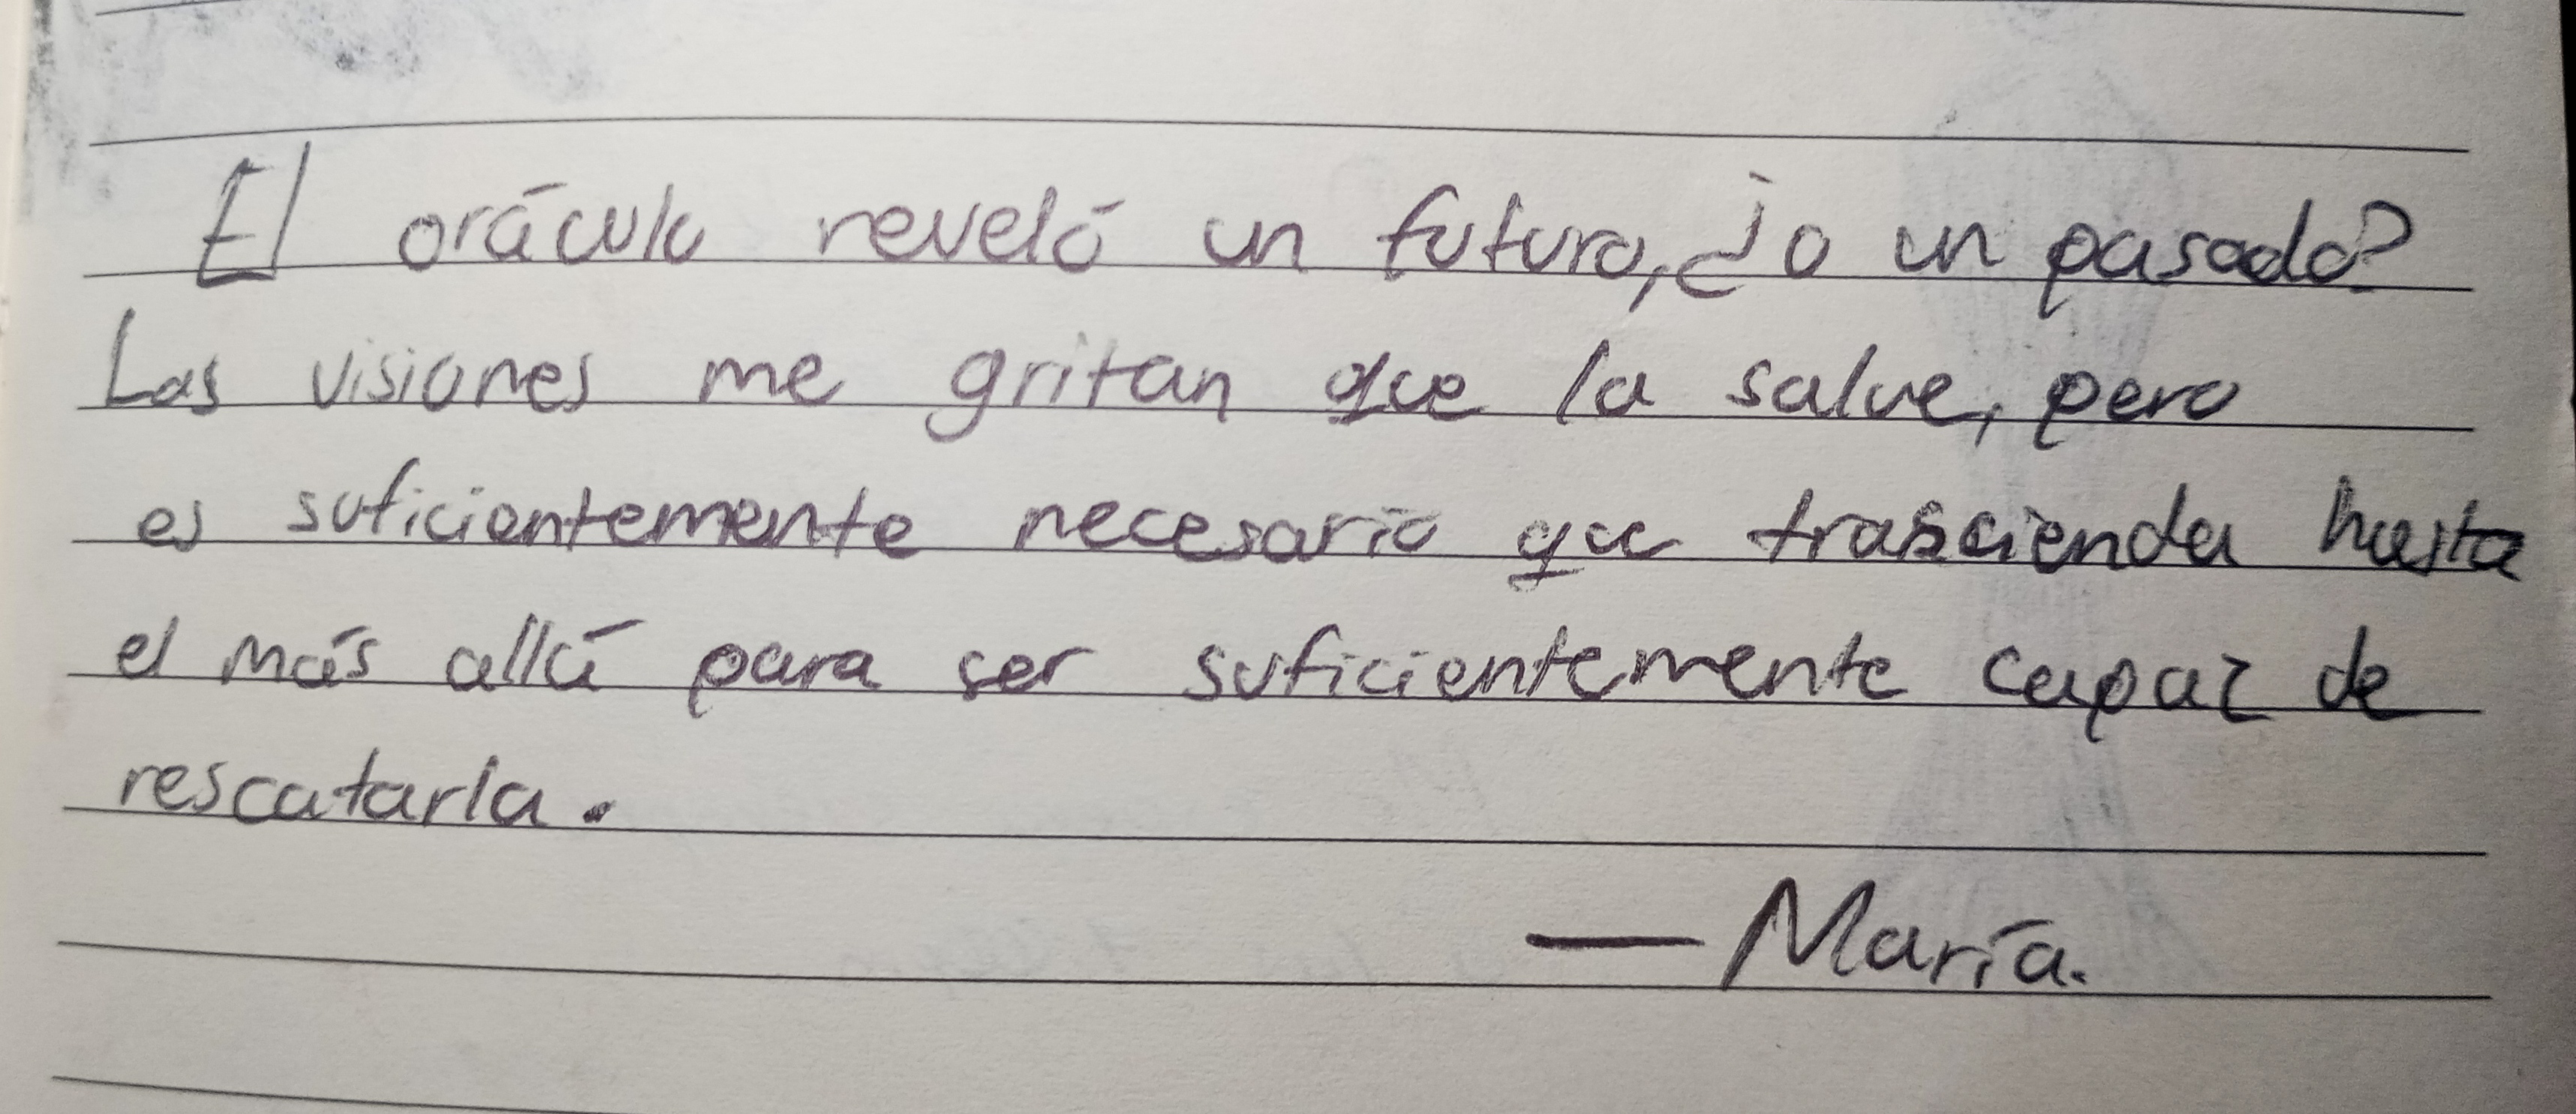 El oráculo reveló un futuro, ¿o un pasado?
Las visiones me gritan que la salve, pero
es suficientemente necesario que trascienda hasta
el más allá para ser suficientemente capaz de
rescatarla.
— María.